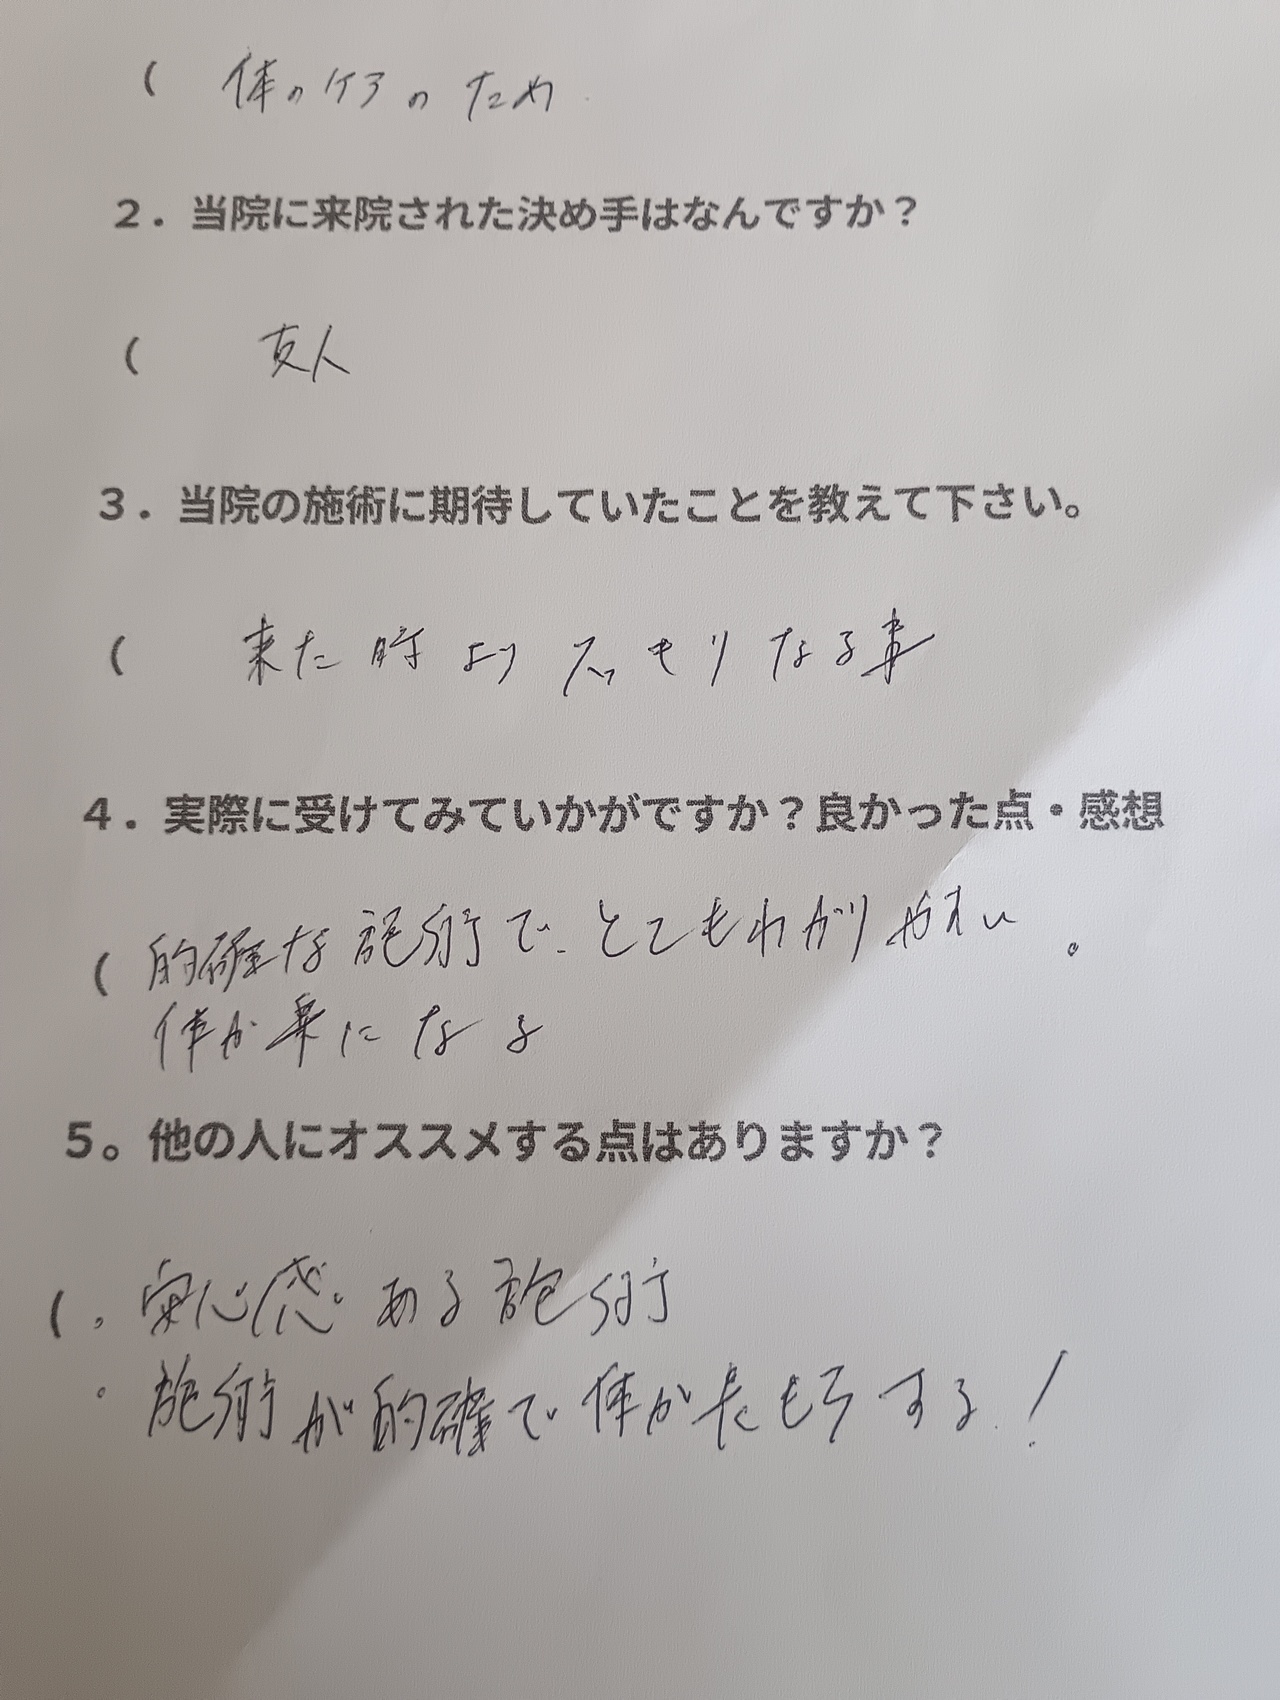 ( 体のケアのため
2．当院に来院された決め手はなんですか？
( 友人
3．当院の施術に期待していたことを教えて下さい。
( 来た時よりスッキリなる事
4．実際に受けてみていかがですか？良かった点・感想
( 的確な施術で、とてもわかりやすい。
体が楽になる
5。他の人にオススメする点はありますか？
( ・安心感ある施術
・施術が的確で体が長もちする！